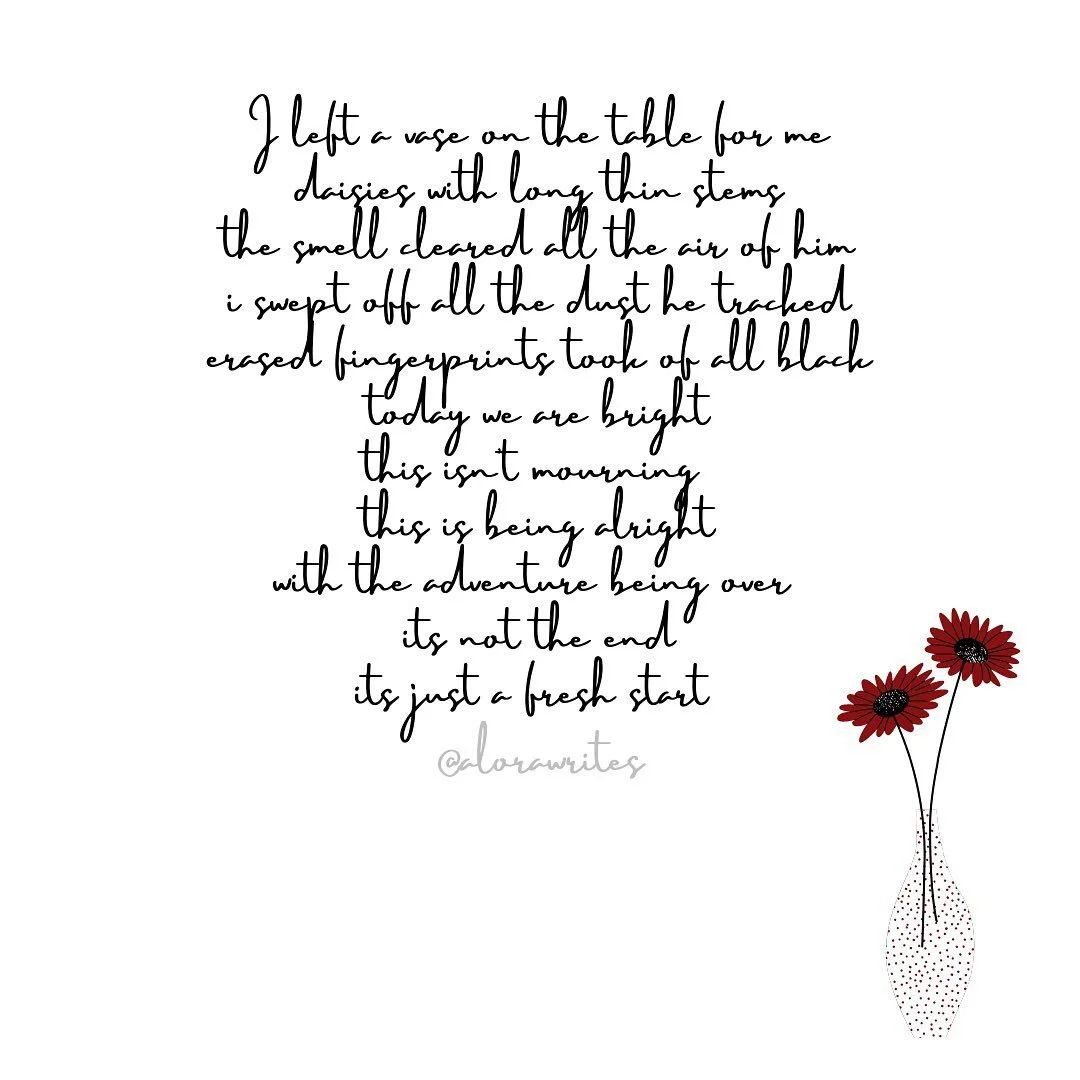 I left a vase on the table for me
daisies with long thin stems
the smell cleared all the air of him
i swept off all the dust he tracked
erased fingerprints took of all black
today we are bright
this isn't mourning
this is being alright
with the adventure being over
its not the end
its just a fresh start
@alorawrites